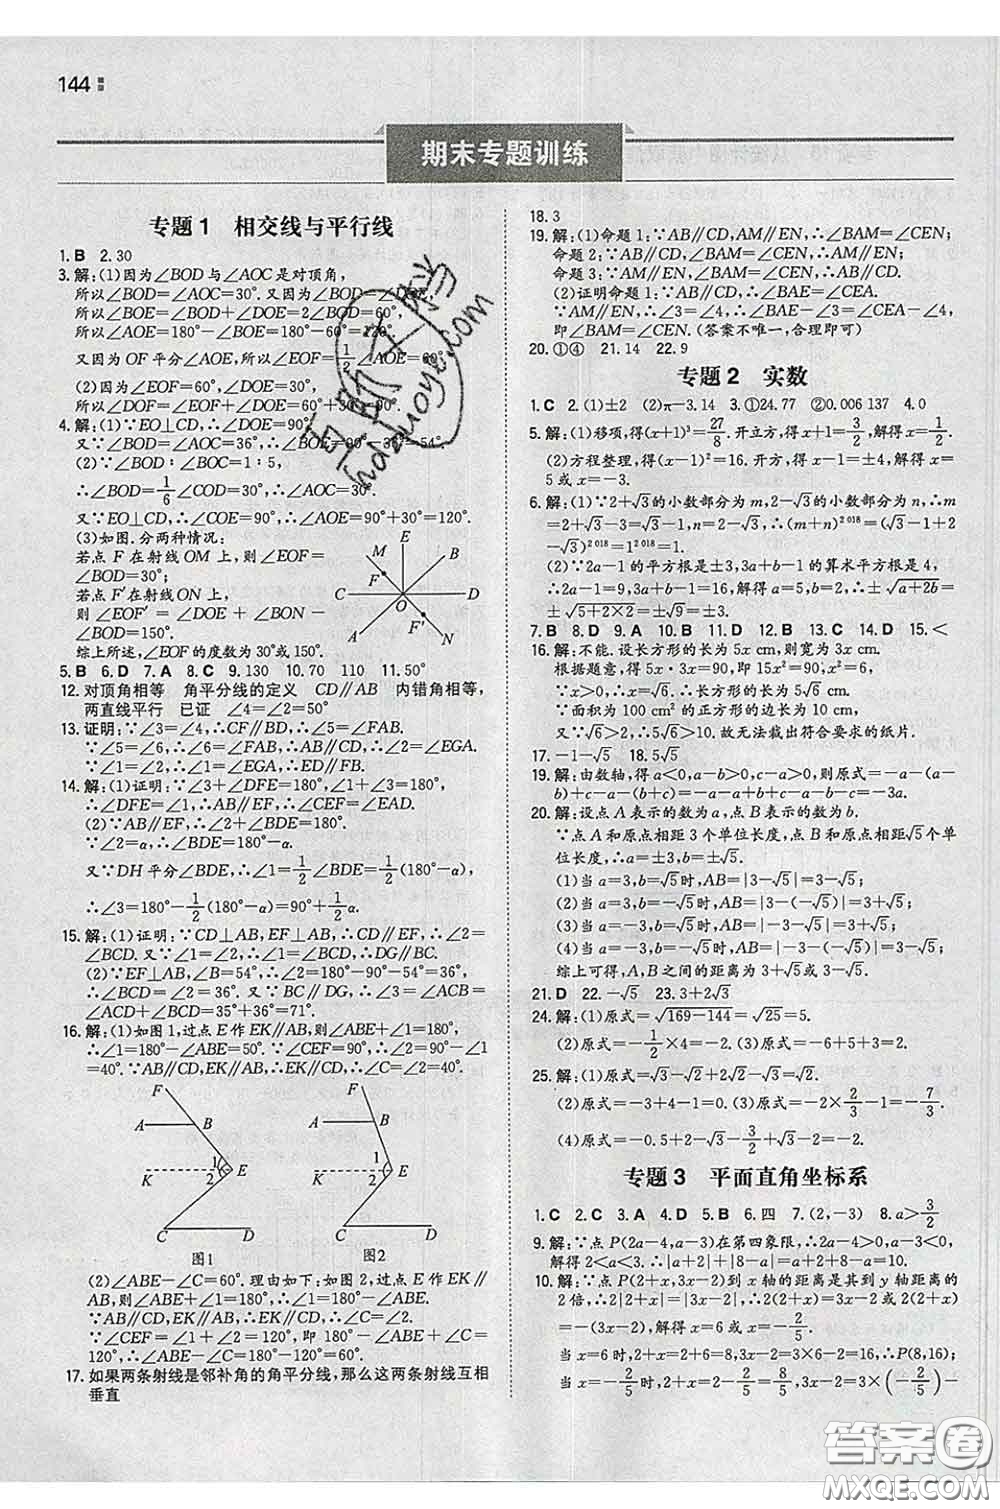 144
期末专题训练
专题1 相交线与平行线
1. B 2. 30
3. 解:(1)因为∠BOD与∠AOC是对顶角,
所以∠BOD=∠AOC=30°. 又因为∠BOD=∠DOE,
所以∠BOE=∠BOD+∠DOE=2∠BOD=60°,
所以∠AOE=180°-∠BOE=180°-60°=120°.
又因为OF平分∠AOE,所以∠EOF=1/2∠AOE=60°.
(2)因为∠EOF=60°,∠DOE=∠BOD=30°,
所以∠DOF=∠EOF+∠DOE=60°+30°=90°.
4. 解:(1)∵EO⊥CD,∴∠DOE=90°.
又∵∠BOD=∠AOC=36°,∴∠BOE=90°-36°=54°.
(2)∵∠BOD∶∠BOC=1∶5,
∴∠BOD=1/6∠COD=30°,∴∠AOC=30°.
又∵EO⊥CD,∴∠COE=90°,∴∠AOE=90°+30°=120°.
(3)如图.分两种情况:
若点F在射线OM上,则∠EOF
=∠BOD=30°;
若点F'在射线ON上,
则∠EOF'=∠DOE+∠BON-
∠BOD=150°.
综上所述,∠EOF的度数为30°或150°.
E M B F C D O A F' N
5. B 6. D 7. A 8. C 9. 130 10. 70 110 11. 50°
12. 对顶角相等 角平分线的定义 CD∥AB 内错角相等,
两直线平行 已证 ∠4=∠2=50°
13. 证明:∵∠3=∠4,∴CF∥BD,∴∠5=∠FAB.
∵∠5=∠6,∴∠6=∠FAB,∴AB∥CD,∴∠2=∠EGA.
∵∠1=∠2,∴∠1=∠EGA,∴ED∥FB.
14. 解:(1)证明:∵∠3+∠DFE=180°,∠1+∠3=180°,
∴∠DFE=∠1,∴AB∥EF,∴∠CEF=∠EAD.
(2)∵AB∥EF,∴∠2+∠BDE=180°.
∵∠2=α,∴∠BDE=180°-α.
又∵DH平分∠BDE,∴∠1=1/2∠BDE=1/2(180°-α),
∴∠3=180°-1/2(180°-α)=90°+1/2α.
15. 解:(1)证明:∵CD⊥AB,EF⊥AB,∴CD∥EF,∴∠2=
∠BCD. 又∵∠1=∠2,∴∠1=∠BCD,∴DG∥BC.
(2)∵EF⊥AB,∠B=54°,∴∠2=180°-90°-54°=36°,
∴∠BCD=∠2=36°. 又∵BC∥DG,∴∠3=∠ACB=
∠ACD+∠BCD=35°+36°=71°.
16. 解:(1)如图1,过点E作EK∥AB,则∠ABE+∠1=180°,
∴∠1=180°-∠ABE=50°.∵∠CEF=90°,∴∠2=90°-∠1
=40°.∵AB∥CD,EK∥AB,∴EK∥CD,∴∠C=∠2=40°.
A B K 1 2 E C D 图1
A B K 1 2 E C D 图2
(2)∠ABE-∠C=60°. 理由如下:如图2,过点E作EK∥
AB,则∠ABE+∠1=180°,∴∠1=180°-∠ABE.
∵AB∥CD,EK∥AB,∴EK∥CD,∴∠C=∠2.
∵∠CEF=∠1+∠2=120°,即180°-∠ABE+∠C=
120°,∴∠ABE-∠C=180°-120°=60°.
17. 如果两条射线是邻补角的角平分线,那么这两条射线互相
垂直
18. 3
19. 解:(1)命题1:∵AB∥CD,AM∥EN,∴∠BAM=∠CEN;
命题2:∵AB∥CD,∠BAM=∠CEN,∴AM∥EN;
命题3:∵AM∥EN,∠BAM=∠CEN,∴AB∥CD.
(2)证明命题1:∵AB∥CD,∴∠BAE=∠CEA.
∵AM∥EN,∴∠3=∠4,∴∠BAE-∠3=∠CEA-∠4,
即∠BAM=∠CEN.(答案不唯一,合理即可)
20. ①④ 21. 14 22. 9
专题2 实数
1. C 2. (1)±2 (2)π-3.14 3. ①24.77 ②0.006 137 4. 0
5. 解:(1)移项,得(x+1)³=27/8. 开立方,得x+1=3/2,解得x=1/2.
(2)方程整理,得(x-1)²=16. 开方,得x-1=±4,解得x=
5或x=-3.
6. 解:(1)∵2+√3的小数部分为m,2-√3的小数部分为n,∴m
=2+√3-3=√3-1,n=2-√3,∴(m+n)²⁰¹⁸=(√3-1+2-
√3)²⁰¹⁸=1²⁰¹⁸=1.
(2)∵2a-1的平方根是±3,3a+b-1的算术平方根是4,
∴2a-1=9,3a+b-1=16,解得a=5,b=2,∴±√(a+2b)=
±√(5+2×2)=±√9=±3.
7. B 8. D 9. A 10. B 11. D 12. B 13. C 14. D 15. <
16. 解:不能. 设长方形的长为5x cm,则宽为3x cm.
根据题意,得5x·3x=90,即15x²=90,x²=6.
∵x>0,∴x=√6.∴长方形的长为5√6 cm.
∵面积为100 cm²的正方形的边长为10 cm,
又∵√6>2,∴5√6>10. 故无法裁出符合要求的纸片.
17. -1-√5 18. 5√5
19. 解:由数轴,得a<0,a-b>0,c-a>0,则原式=-a-(a-
b)+c-a-(b-c)=-a-a+b+c-a-b-c=-3a.
20. 解:设点A表示的数为a,点B表示的数为b.
∵点A和原点相距3个单位长度,点B和原点相距√5个单
位长度,∴a=±3,b=±√5.
(1)当a=3,b=√5时,AB=|3-√5|=3-√5;
(2)当a=3,b=-√5时,AB=|3-(-√5)|=3+√5;
(3)当a=-3,b=√5时,AB=|-3-√5|=3+√5;
(4)当a=-3,b=-√5时,AB=|-3-(-√5)|=3-√5;
综上可得,A,B之间的距离为3+√5或3-√5.
21. D 22. -√5 23. 3+2√3
24. 解:(1)原式=√(169-144)=√25=5.
(2)原式=-1/2×4=-2. (3)原式=-3+5+0=2.
25. 解:(1)原式=√3-√2+2√2-√3=√2.
(2)原式=-3+4-1=0. (3)原式=-2×2/3-1=-7/3.
(4)原式=-0.5+2-√3-3/2+√3-2=-2.
专题3 平面直角坐标系
1. C 2. C 3. A 4. D 5. B 6. 四 7. (2,-3) 8. a>3/2
9. 解:∵点P(2a-4,a-3)在第四象限,∴2a-4>0,a-3<0,
解得2<a<3,∴|a+2|+|8-a|=a+2+8-a=10.
10. 解:∵点P(2+x,3x-2)到x轴的距离是其到y轴距离的
2倍,∴2|2+x|=|3x-2|,∴2(2+x)=3x-2或2(2+x)=
-(3x-2),解得x=6或x=-2/5.
当x=6时,2+x=2+6=8,3x-2=3×6-2=16,∴P(8,16);
当x=-2/5时,2+x=2-2/5=8/5,3x-2=3×(-2/5)-
答案圈
MXQE.COM